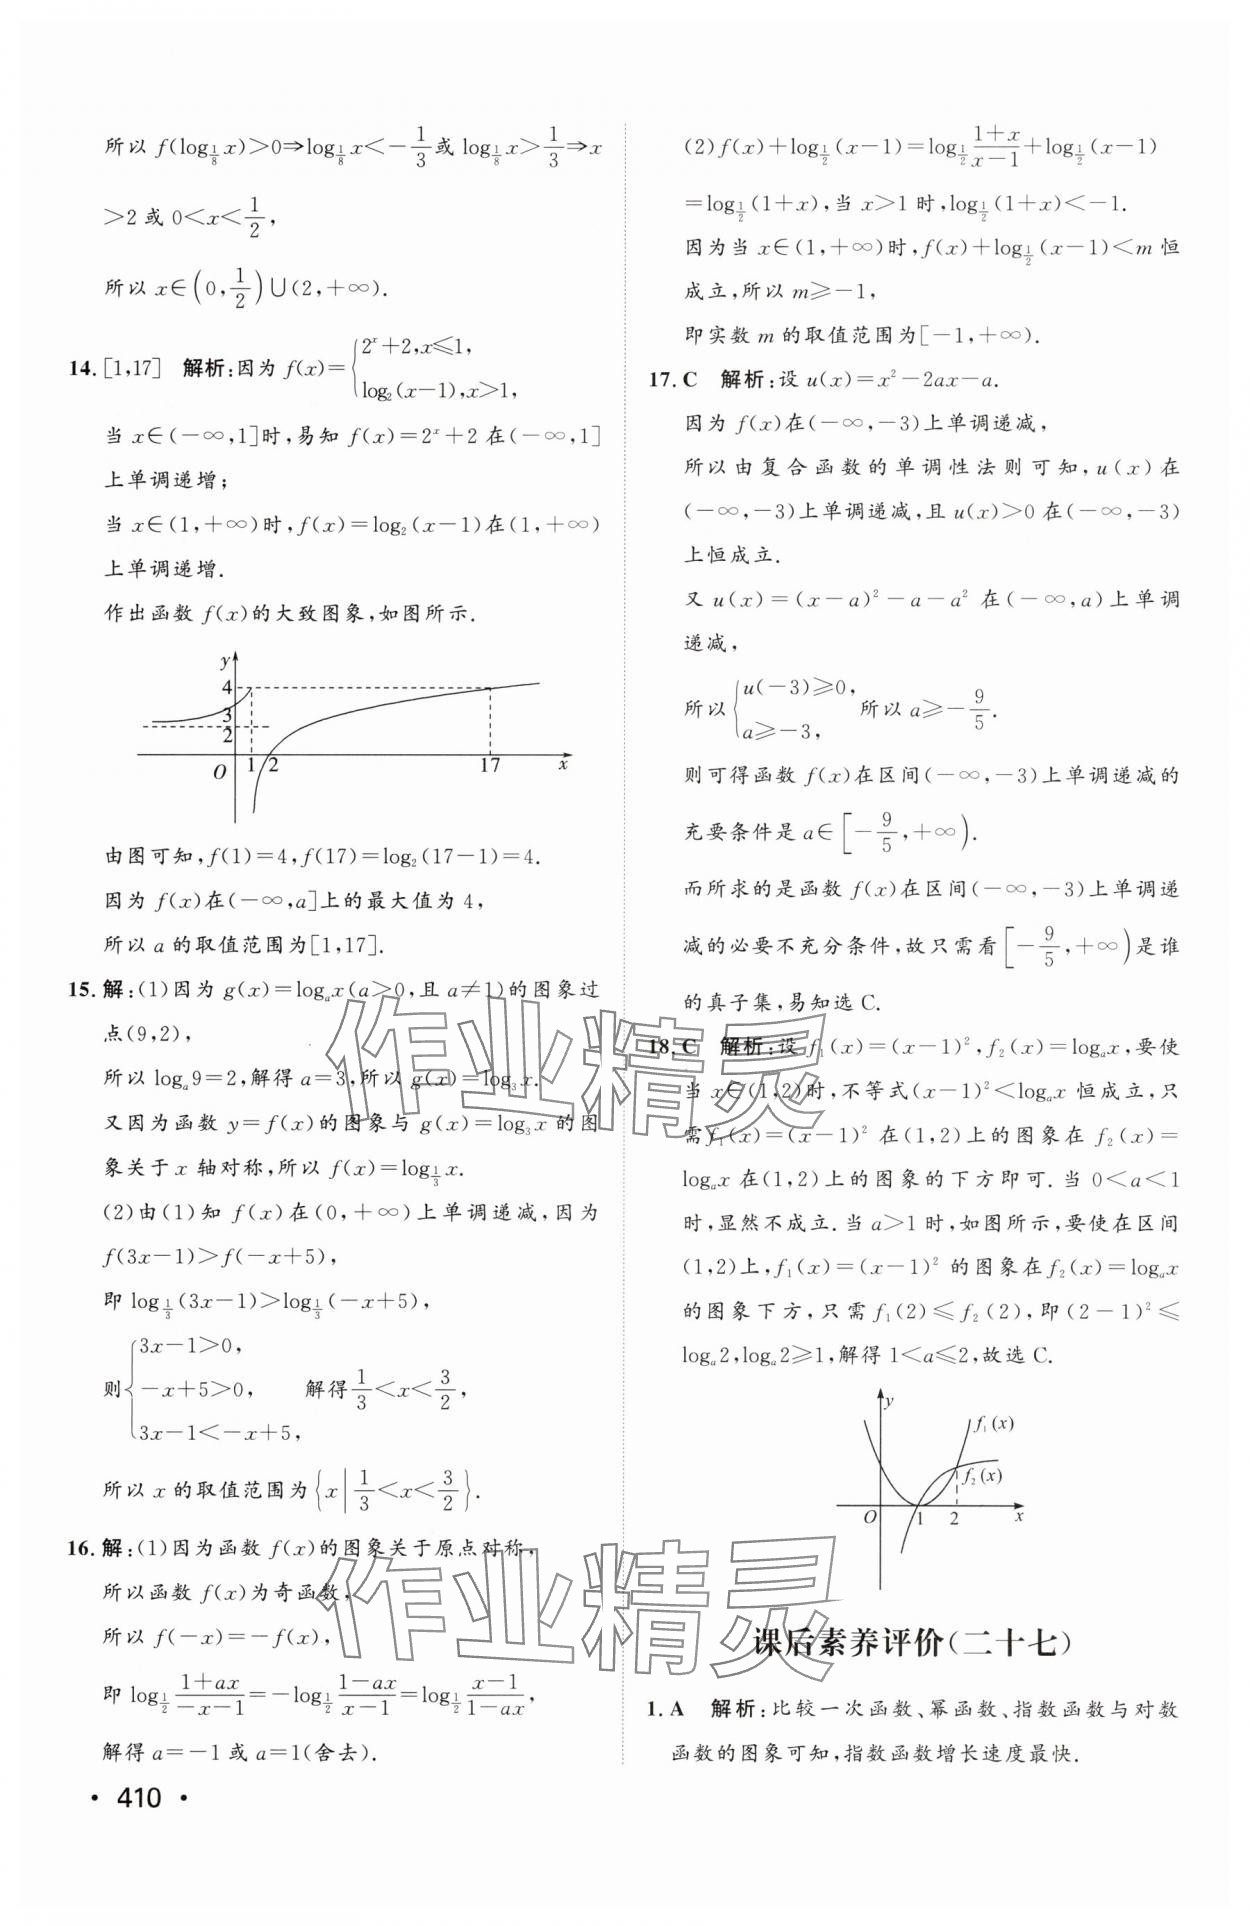 所以 f(log_{1/8} x)>0⇒log_{1/8} x<-1/3或 log_{1/8} x>1/3⇒x
>2 或 0<x<1/2,
所以 x∈(0,1/2)∪(2,+∞).
14.[1,17] 解析:因为 f(x)={2^x+2,x≤1,
log₂(x-1),x>1,
当 x∈(-∞,1]时,易知 f(x)=2^x+2 在(-∞,1]
上单调递增;
当 x∈(1,+∞)时,f(x)=log₂(x-1)在(1,+∞)
上单调递增.
作出函数 f(x)的大致图象,如图所示.
y
4
3
2
O 1 2 17 x
由图可知,f(1)=4,f(17)=log₂(17-1)=4.
因为 f(x)在(-∞,a]上的最大值为 4,
所以 a 的取值范围为[1,17].
15.解:(1)因为 g(x)=log_a x(a>0,且 a≠1)的图象过
点(9,2),
所以 log_a 9=2,解得 a=3,所以 g(x)=log₃x.
又因为函数 y=f(x)的图象与 g(x)=log₃x 的图
象关于 x 轴对称,所以 f(x)=log_{1/3} x.
(2)由(1)知 f(x)在(0,+∞)上单调递减,因为
f(3x-1)>f(-x+5),
即 log_{1/3}(3x-1)>log_{1/3}(-x+5),
则{3x-1>0,
-x+5>0, 解得1/3<x<3/2,
3x-1<-x+5,
所以 x 的取值范围为{x|1/3<x<3/2}.
16.解:(1)因为函数 f(x)的图象关于原点对称,
所以函数 f(x)为奇函数,
所以 f(-x)=-f(x),
即 log_{1/2} (1+ax)/(-x-1)=-log_{1/2} (1-ax)/(x-1)=log_{1/2} (x-1)/(1-ax),
解得 a=-1 或 a=1(舍去).
· 410 ·
(2)f(x)+log_{1/2}(x-1)=log_{1/2} (1+x)/(x-1)+log_{1/2}(x-1)
=log_{1/2}(1+x),当 x>1 时,log_{1/2}(1+x)<-1.
因为当 x∈(1,+∞)时,f(x)+log_{1/2}(x-1)<m 恒
成立,所以 m≥-1,
即实数 m 的取值范围为[-1,+∞).
17.C 解析:设 u(x)=x²-2ax-a.
因为 f(x)在(-∞,-3)上单调递减,
所以由复合函数的单调性法则可知,u(x)在
(-∞,-3)上单调递减,且u(x)>0 在(-∞,-3)
上恒成立.
又 u(x)=(x-a)²-a-a² 在(-∞,a)上单调
递减,
所以{u(-3)≥0,
a≥-3, 所以 a≥-9/5.
则可得函数 f(x)在区间(-∞,-3)上单调递减的
充要条件是 a∈[-9/5,+∞).
而所求的是函数 f(x)在区间(-∞,-3)上单调递
减的必要不充分条件,故只需看[-9/5,+∞)是谁
的真子集,易知选 C.
18.C 解析:设 f₁(x)=(x-1)²,f₂(x)=log_a x,要使
当 x∈(1,2)时,不等式(x-1)²<log_a x 恒成立,只
需f₁(x)=(x-1)² 在(1,2)上的图象在 f₂(x)=
log_a x 在(1,2)上的图象的下方即可.当 0<a<1
时,显然不成立.当 a>1 时,如图所示,要使在区间
(1,2)上,f₁(x)=(x-1)² 的图象在 f₂(x)=log_a x
的图象下方,只需 f₁(2)≤f₂(2),即(2-1)²≤
log_a 2,log_a 2≥1,解得 1<a≤2,故选 C.
y
f₁(x)
f₂(x)
O 1 2 x
课后素养评价(二十七)
1.A 解析:比较一次函数、幂函数、指数函数与对数
函数的图象可知,指数函数增长速度最快.
作业精灵
作业精灵